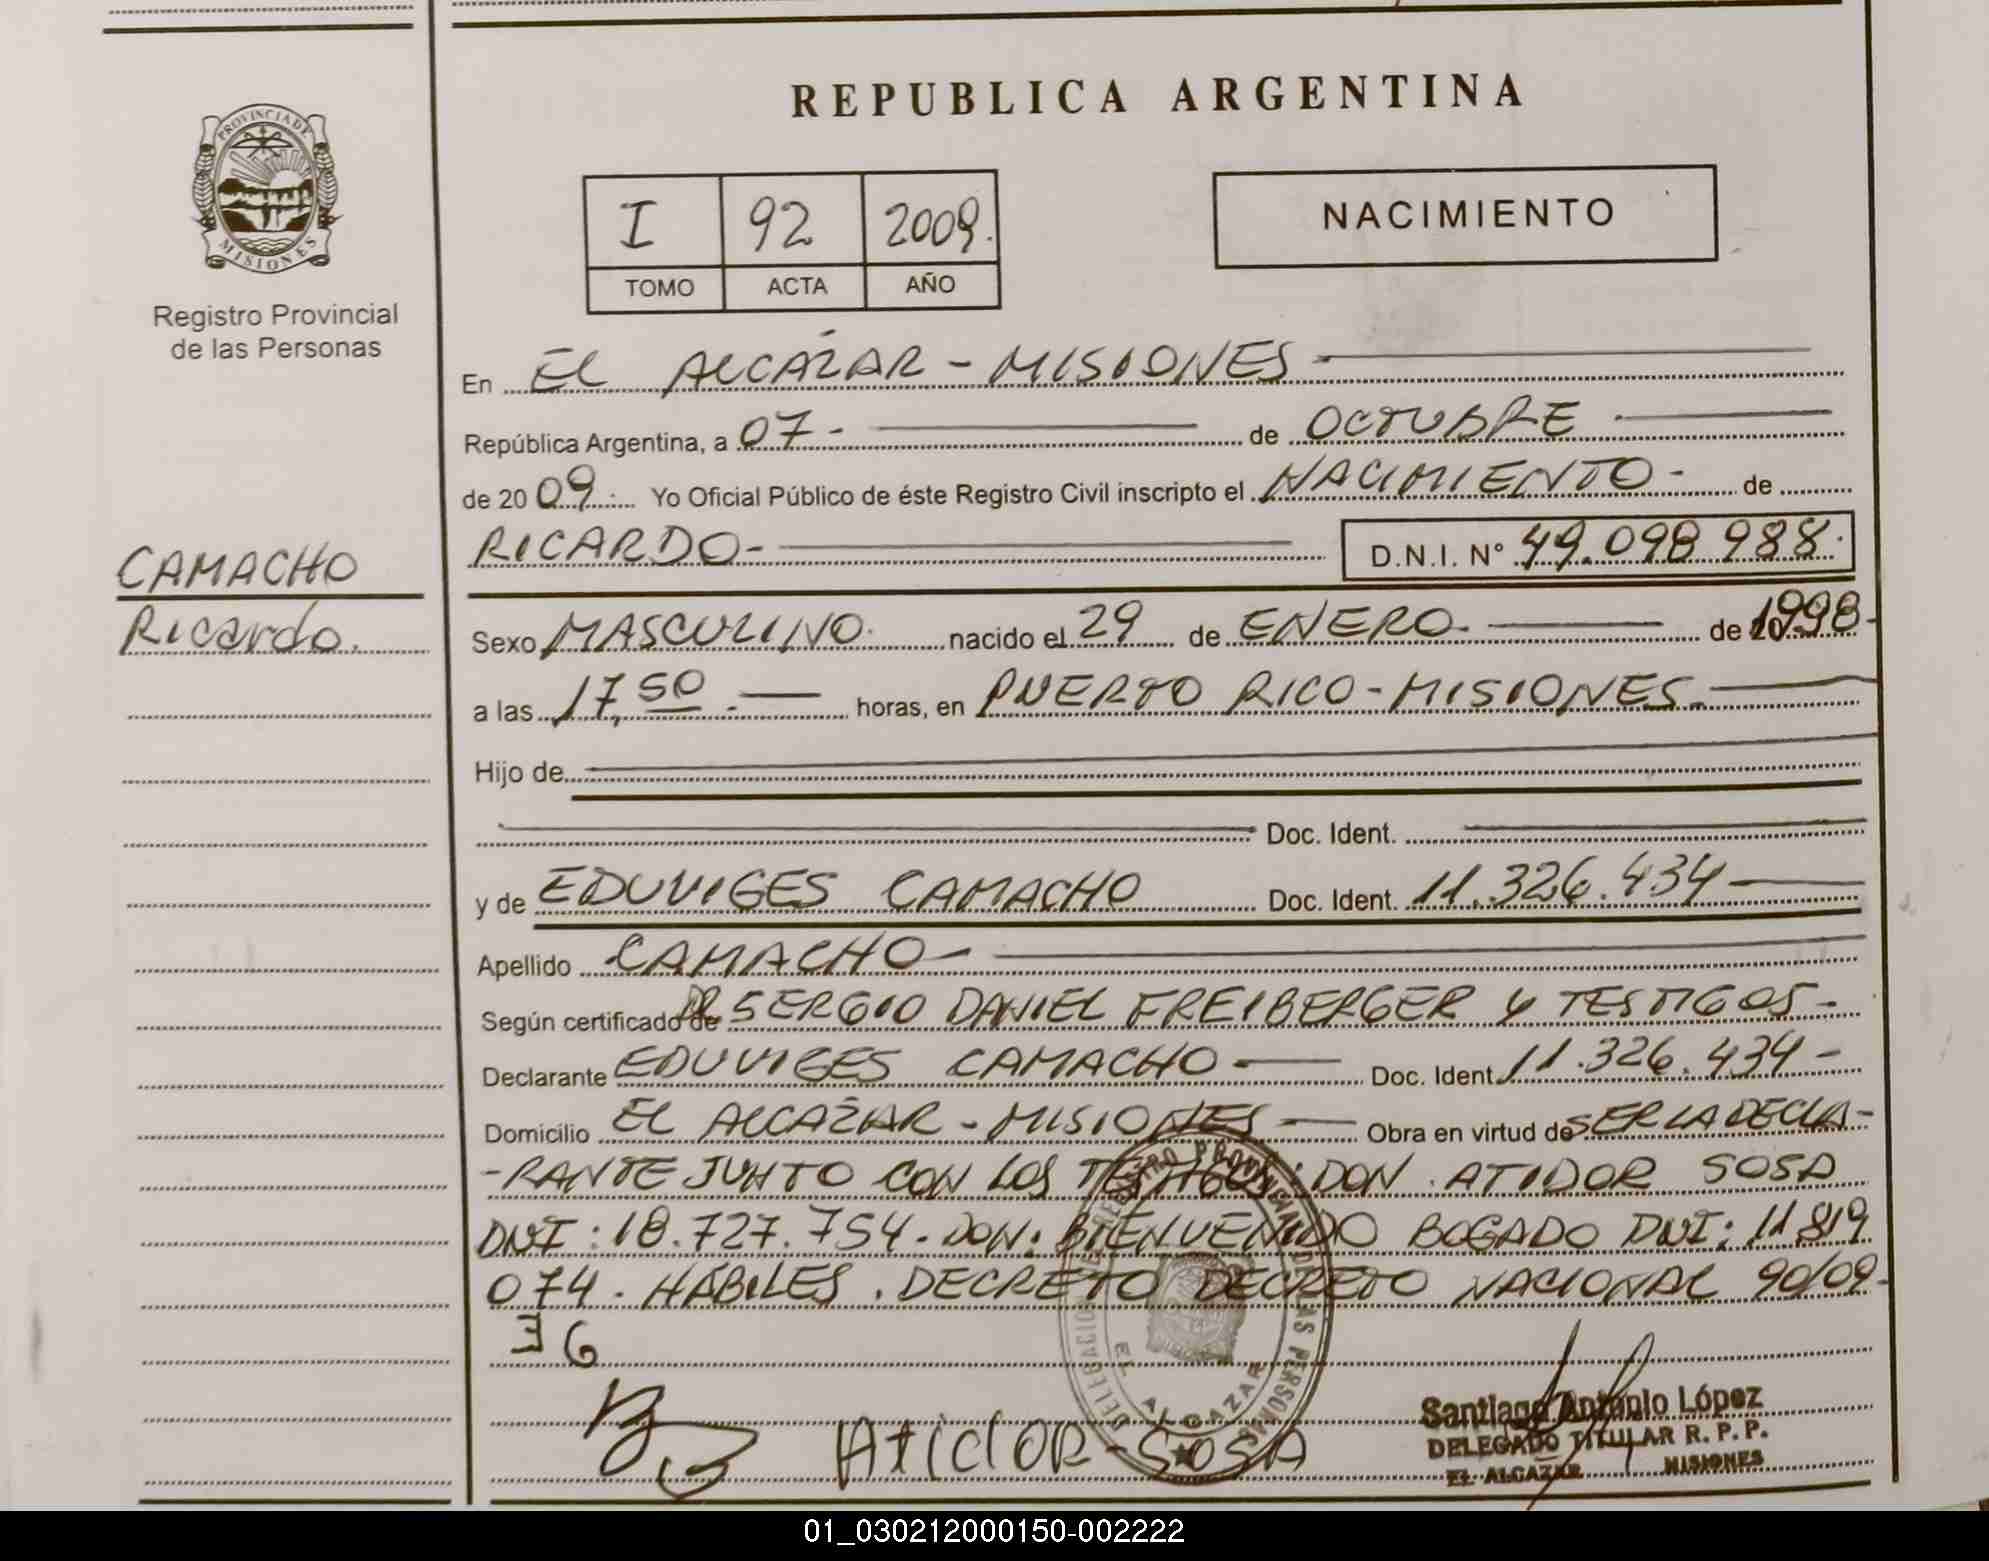 REPUBLICA ARGENTINA
PROVINCIA DE
MISIONES
Registro Provincial
de las Personas
I 92 2009.
TOMO ACTA AÑO
NACIMIENTO
En EL ALCÁZAR - MISIONES -
República Argentina, a 07 - de OCTUBRE -
de 2009 . Yo Oficial Público de éste Registro Civil inscripto el NACIMIENTO - de
RICARDO - D.N.I. N° 49.098 988.
CAMACHO
Ricardo.
Sexo MASCULINO. nacido el 29 de ENERO. de 1998 -
a las 17,50. horas, en PUERTO RICO - MISIONES.
Hijo de
Doc. Ident.
y de EDUVIGES CAMACHO Doc. Ident. 11.326.434
Apellido CAMACHO -
Según certificado de DR SERGIO DANIEL FREIBERGER Y TESTIGOS -
Declarante EDUVIGES CAMACHO Doc. Ident. 11.326.434 -
Domicilio EL ALCÁZAR - MISIONES Obra en virtud de SER LA DECLA-
-RANTE JUNTO CON LOS TESTIGOS: DON ATIDOR SOSA
DNI: 18.727.754. DON: BIENVENIDO BOGADO DNI: 11 819
074. HÁBILES. DECRETO DECRETO NACIONAL 90/09-
Atidor - SOSA
DELEGACION REGISTRO PROVINCIAL DE LAS PERSONAS
EL ALCAZAR
Santiago Antonio López
DELEGADO TITULAR R. P. P.
EL ALCAZAR MISIONES
01_030212000150-002222